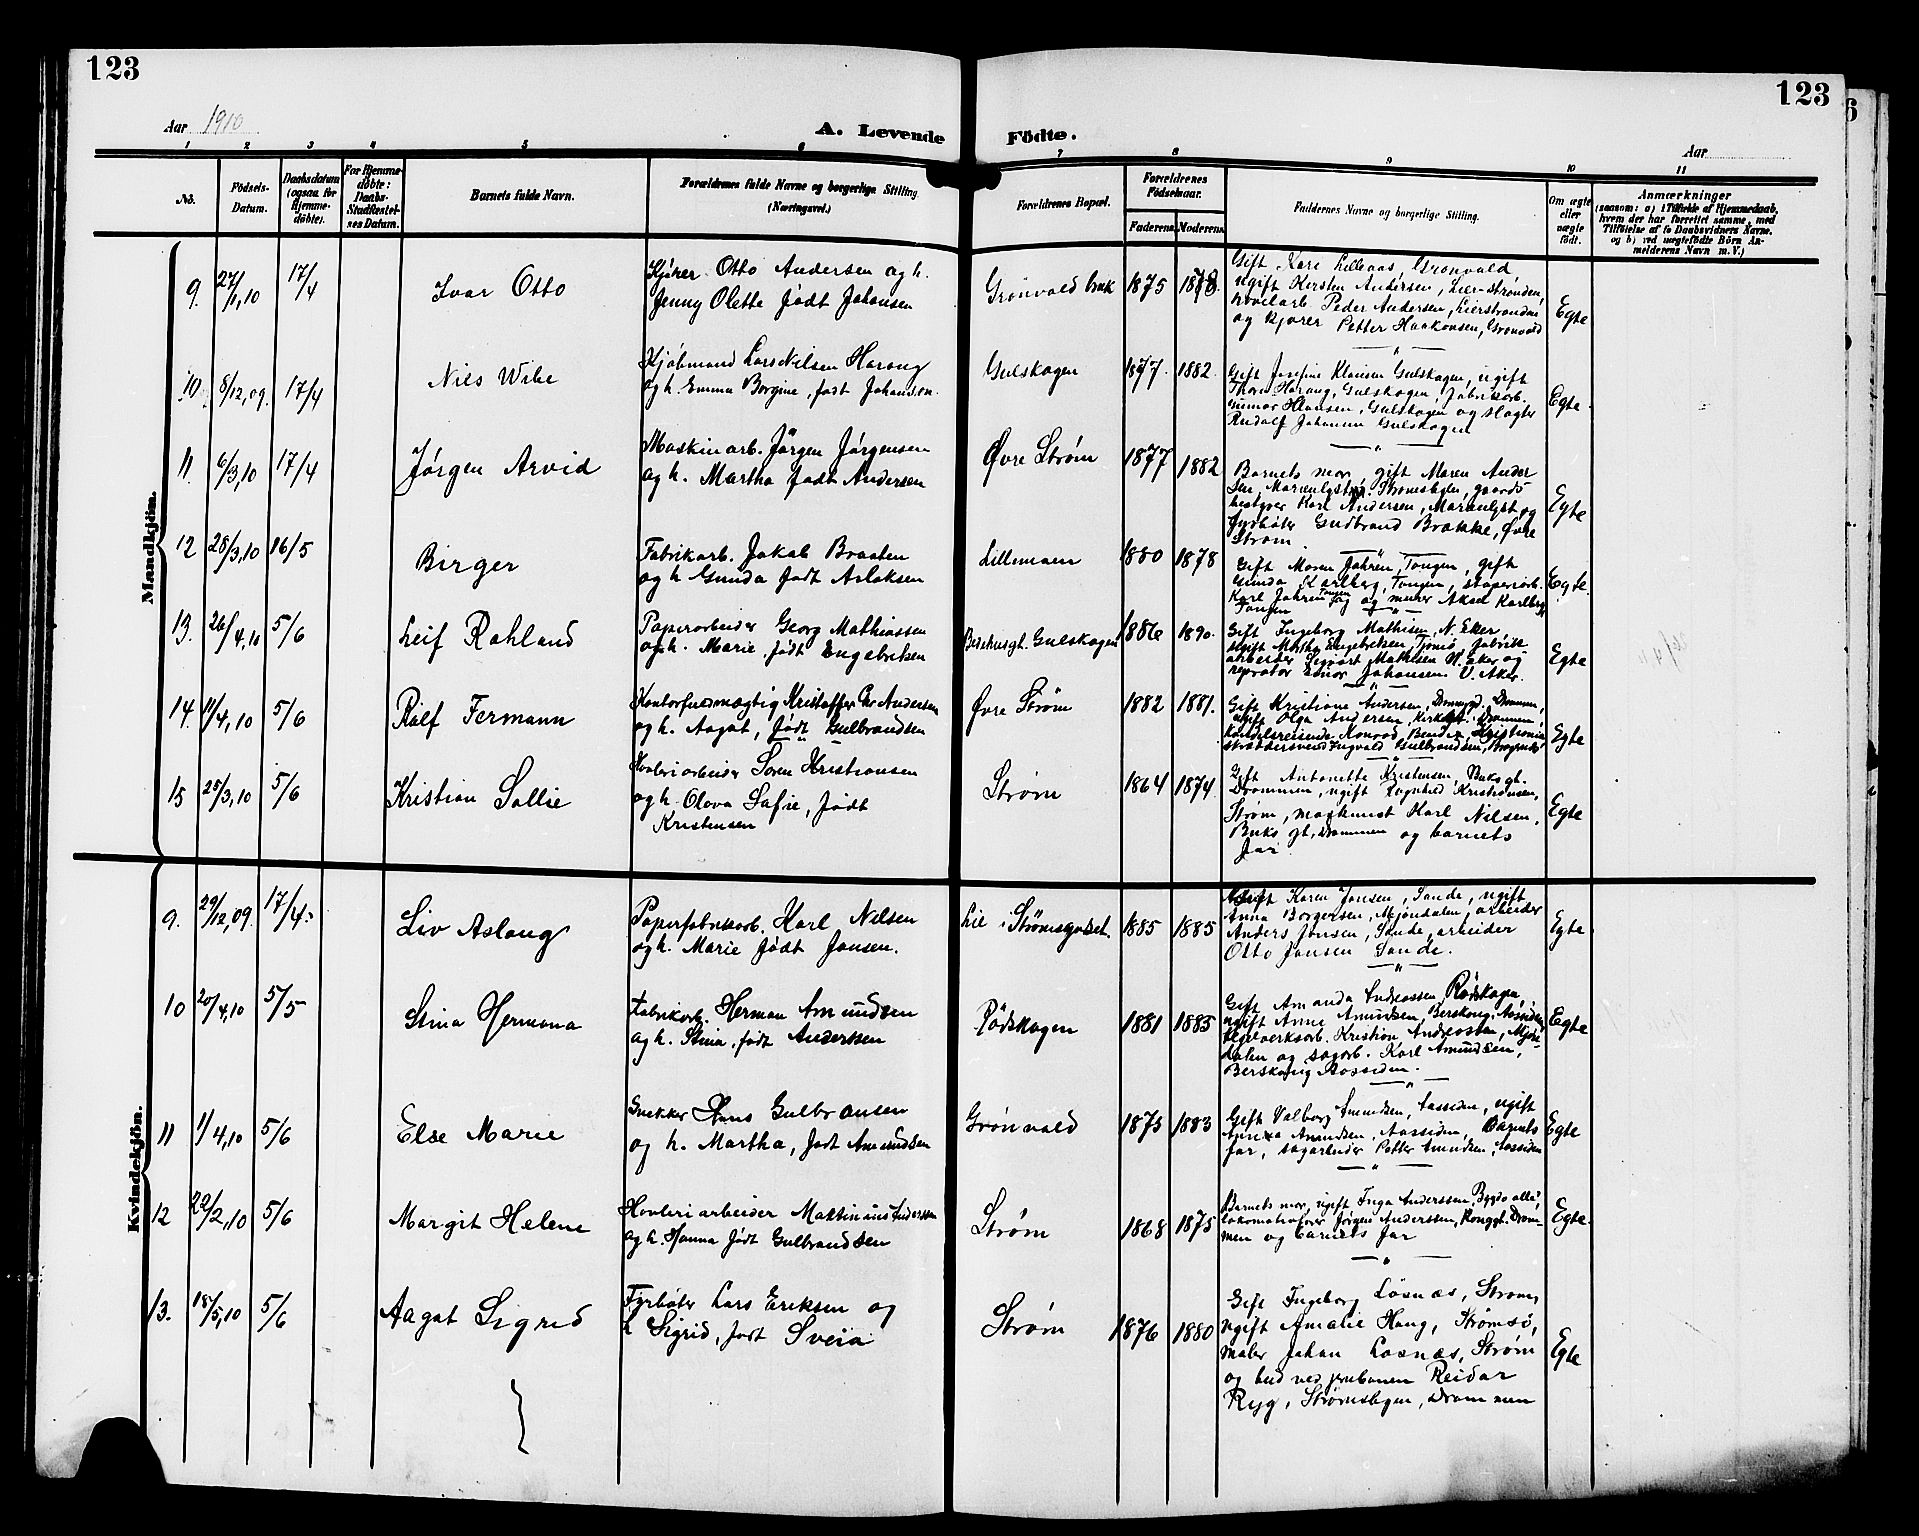 123
123
Aar 1910
A. Levende Födte.
Aar
1 2 3 4 5 6 7 8 9 10 11
No.
Födsels-Datum.
Daabsdatum (ogsaa for Hjemmedöbte).
For Hjemmedöbte: Daabs-Stadfæstelses Datum.
Barnets fulde Navn.
Forældrenes fulde Navne og borgerlige Stilling (Næringsvei.)
Forældrenes Bopæl.
Forældrenes Födselsaar.
Faderens Moderens
Faddernes Navne og borgerlige Stilling.
Om ægte eller uægte födt.
Anmærkninger
(saasom: a) i Tilfælde af Hjemmedaab, hvem der har forrettet samme, med Tilföielse af to Daabsvidners Navne, og b) ved uægtefödte Börn Anmelderens Navn m. V.)
Mandkjön.
9. 27/1,10 17/4 Ivar Otto
Kjører Otto Andersen og h.
Jenny Olette født Johansen
Grönvold bruk 1875 1878
Gift Kari Lilleaas, Grønvold,
ugift Kirsten Andersen, Lier-stranden,
høvelarb Peder Andersen, Lierstranden
og kjører Petter Haakonsen, Grønvold
Egte
10. 8/12,09. 17/4 Nils Wibe
Kjøbmand Lars Nilsen Harang
og h. Emma Borgine, født Johansen.
Gulskogen 1877. 1882.
Gift Josefine Klausen Gulskogen, ugift
Thora Harang, Gulskogen, fabrikarb.
Gunnar Hansen, Gulskogen og slagter
Rudolf Johansen Gulskogen
Egte.
11. 6/3,10 17/4 Jørgen Arvid
Maskinarb. Jørgen Jørgensen
og h. Martha født Andersen
Øvre Strøm 1877 1882
Barnets mor, gift Maren Ander
sen, Marienlyst, Strømslien, gaards
bestyrer Karl Andersen, Marienlyst, og
fyrbøter Gudbrand Brække, Øvre
Strøm.
Egte
12 28/3,10 16/5 Birger
Fabrikarb. Jakob Braaten
og h. Gunda født Aslaksen
Lillemoen 1880 1878
Gift Maren Jahren, Tangen, gift
Gunda Karlberg, Tangen, staperiarb.
Karl Jahren Tangen og murer Aksel Karlberg
Tangen
Egte.
13. 26/4,10 5/6 Leif Rohland
Papirarbeider Georg Mathiassen
og h. Marie, født Engebriksen
Bedehusgt. Gulskogen 1886 1890.
Gift Ingeborg Mathisen, N. Eker
ugift Martha Engebriksen, Tjømø, fabrik
arbeider Sigvart Mathisen N. Eker og
reparatør Einar Johansen V. Aker.
Egte
14. 11/4,10 5/6 Rolf Fermann
Kontorfuldmægtig Kristoffer Chr Andersen
og h. Aagot, født Gulbrandsen
Øvre Strøm 1882 1881.
Gift Kristiane Andersen, Drammen,
ugift Olga Andersen, Kirkegt. Drammen,
handelsreisende Konrad Bender, Kristiania
skræddersvend Ingvald Gulbrandsen,
Egte
15 25/3,10 5/6 Kristian Sollie
Høvleriarbeider Søren Kristiansen
og h. Olava Sofie, født
Kristensen
Strøm 1864 1874.
Gift Antonette Kristensen, Buks gt.
Drammen, ugift Ragnhild Kristiansen,
Strøm, maskinist Karl Nilsen,
Buks gt, Drammen og barnets
far.
Egte
Kvindekjön.
9. 29/12,09. 17/4. Liv Aslaug
Papirfabrikarb. Karl Nilsen
og h. Marie født Jonsen.
Lie i Strømsgodset. 1885 1885
Ugift Karen Jonsen, Sande, ugift
Anna Borgersen, Mjøndalen, arbeider
Anders Jonsen, Sande, arbeider
Otto Jonsen Sande.
Egte
10 20/4,10 5/5 Stina Hermana
Fabrikarb. Herman Amundsen
og h. Stina, født Anderssen
Rødskogen 1881 1885
Gift Amanda Andreassen, Rødskogen,
ugift Anne Amundsen, Berskaug, Aassiden,
teglverksarb. Kristian Andreassen, Mjøn-
dalen og sagarb. Karl Amundsen,
Berskaug Aassiden.
Egte
11 1/4,10 5/6 Else Marie
Snekker Hans Gulbransen
og h. Martha, født Amundsen
Grönvold 1875 1883
Gift Valborg Amundsen, Aassiden, ugift
Anna Amundsen, Aassiden, Barnets
far, sagarbeider Petter Amundsen, Aassiden
Egte
12 22/2,10 5/6 Margit Helene
Høvleriarbeider Martinius Anderssen
og h. Hanna født Gulbrandsen
Strøm 1868 1875
Barnets mor, ugift Inga Anderssen, Bygdø allé,
lokomotivfører Jørgen Anderssen, Kongsgt. Dram-
men og barnets far
Egte.
13. 18/5,10 5/6 Aagot Sigrid
Fyrbøter Lars Eriksen og
h Sigrid, født Sveia
Strøm 1876 1880
Gift Ingeborg Losnæs, Strøm,
ugift Amalie Haug, Strømsø,
maler Johan Losnæs, Strøm
og bud ved jernbanen Reidar
Ryg, Strømslien, Drammen
Egte